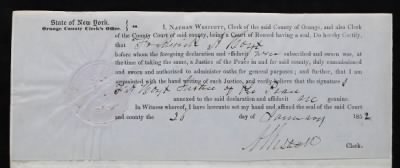 State of New York.
Orange County Clerk's Office.
I, NATHAN WESTCOTT, Clerk of the said County of Orange, and also Clerk
of the County Court of said county, being a Court of Record having a seal, Do hereby Certify,
that Frederick A Hoyt
before whom the foregoing declaration and affidavit was subscribed and sworn was, at
the time of taking the same, a Justice of the Peace in and for said county, duly commissioned
and sworn and authorized to administer oaths for general purposes; and further, that I am
acquainted with the hand writing of such Justice, and verily believe that the signature
F A Hoyt Justice of the Peace
annexed to the said declaration and affidavit are genuine.
In Witness whereof, I have hereunto set my hand and affixed the seal of the said Court
and county the 26 day of January 1852
Clerk.